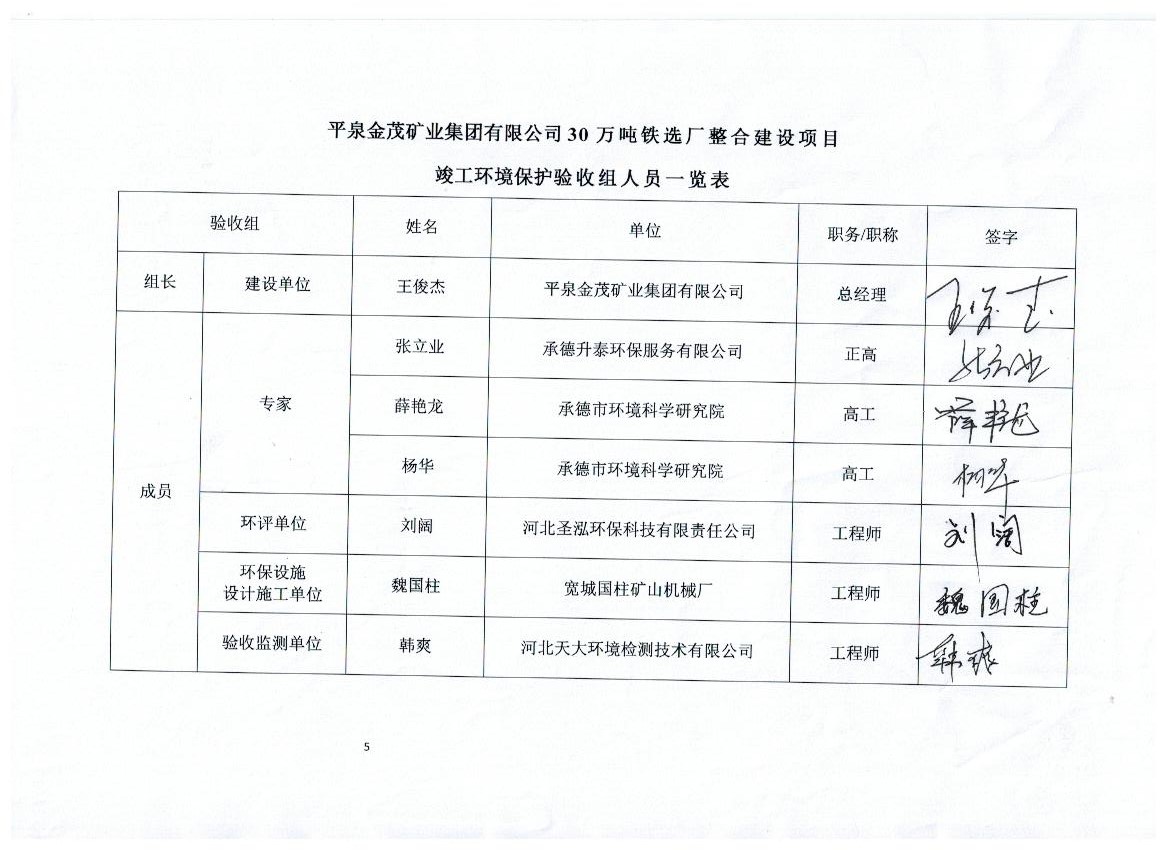 平泉金茂矿业集团有限公司30万吨铁选厂整合建设项目
竣工环境保护验收组人员一览表
验收组 姓名 单位 职务/职称 签字
组长 建设单位 王俊杰 平泉金茂矿业集团有限公司 总经理 王俊杰
成员 专家 张立业 承德升泰环保服务有限公司 正高 张立业
薛艳龙 承德市环境科学研究院 高工 薛艳龙
杨华 承德市环境科学研究院 高工 杨华
环评单位 刘阔 河北圣泓环保科技有限责任公司 工程师 刘阔
环保设施
设计施工单位 魏国柱 宽城国柱矿山机械厂 工程师 魏国柱
验收监测单位 韩爽 河北天大环境检测技术有限公司 工程师 韩爽
5